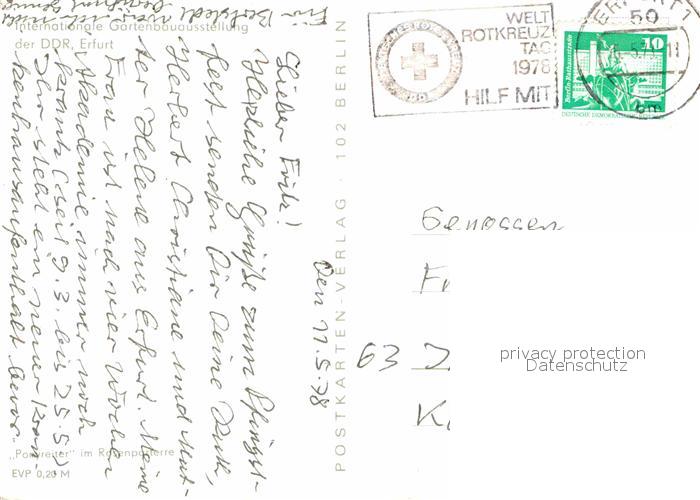 Internationale Gartenbauausstellung
der DDR, Erfurt
Den 11.5.78
Lieber Fritz!
Herzliche Grüße zum Pfingst-
fest senden Dir Deine Ruth,
Herbert, Christiane und Mut-
ter Helene aus Erfurt. Meine
Frau ist nach vier Wochen
Akademie immer noch
krank (seit 9.3. bis 25.5.)
Ihr steht ein neuer Kran-
kenhausaufenthalt bevor.
Für
"Ponyreiter" im Rosenparterre
EVP 0,20 M
POSTKARTEN-VERLAG · 102 BERLIN
WELT
ROTKREUZ
TAG
1978
HILF MIT
50
10
Berlin-Rathausstraße
DEUTSCHE DEMOKRATISCHE
Genossen
63
privacy protection
Datenschutz